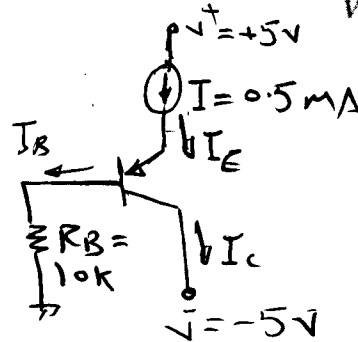 V⁺=+5V
I=0.5mA
I_B
I_E
R_B=
10K
I_C
V̄=-5V